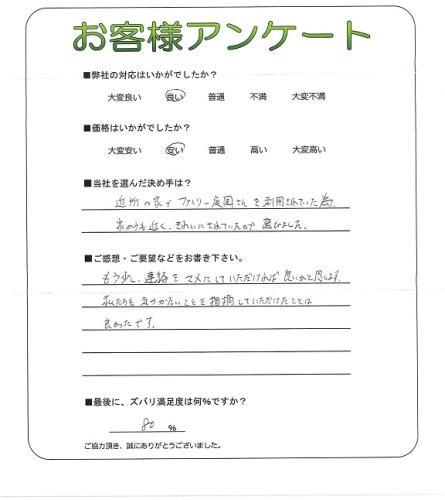 お客様アンケート
■弊社の対応はいかがでしたか？
大変良い 良い 普通 不満 大変不満
■価格はいかがでしたか？
大変安い 安い 普通 高い 大変高い
■当社を選んだ決め手は？
近所の家で ファミリー庭園さんを利用されていた為、
家からも近く、きれいにされていたので選びました。
■ご感想・ご要望などをお書き下さい。
もう少し、連絡をマメにしていただければ良いかと思います。
私たちも気づかないことを指摘していただけたことは
良かったです。
■最後に、ズバリ満足度は何％ですか？
80 ％
ご協力頂き、誠にありがとうございました。